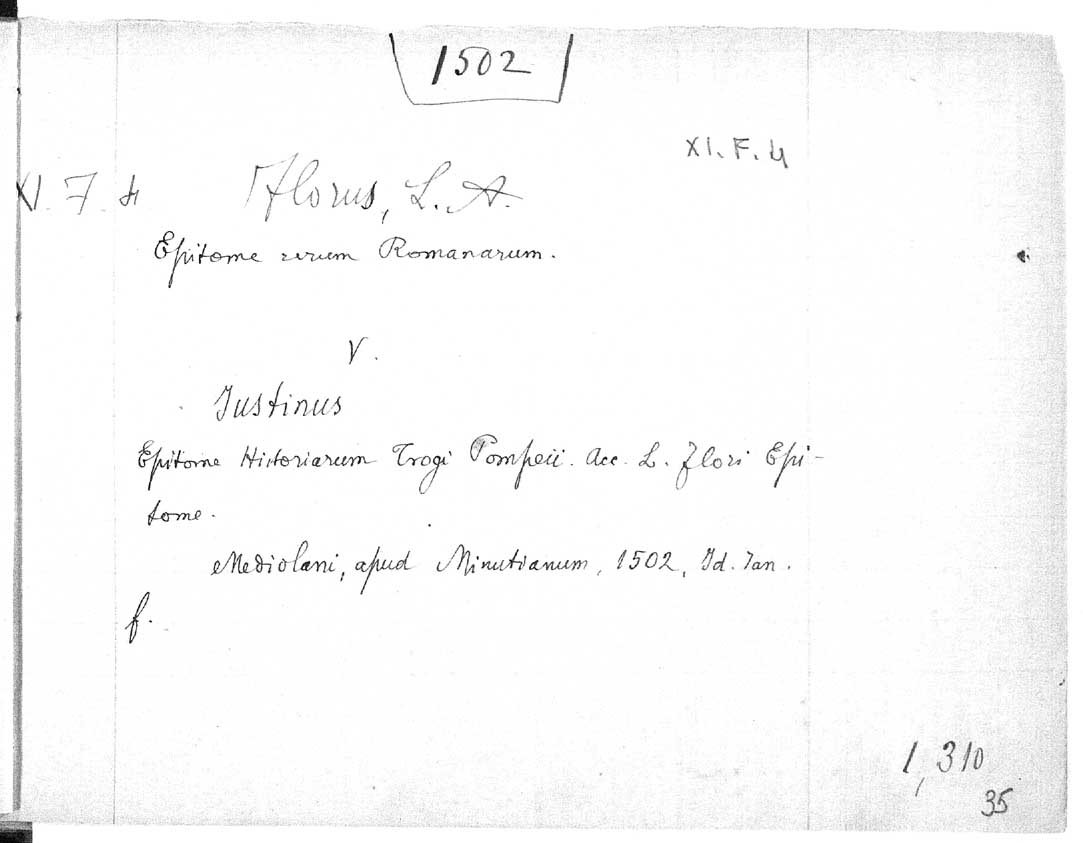 1502
XI. F. 4
XI. F. 4 Florus, L. A.
Epitome rerum Romanarum.
V.
Justinus
Epitome Historiarum Trogi Pompeii. Acc. L. Flori Epi-
tome.
Mediolani, apud Minutianum, 1502, Id. Jan.
f.
1, 310
35